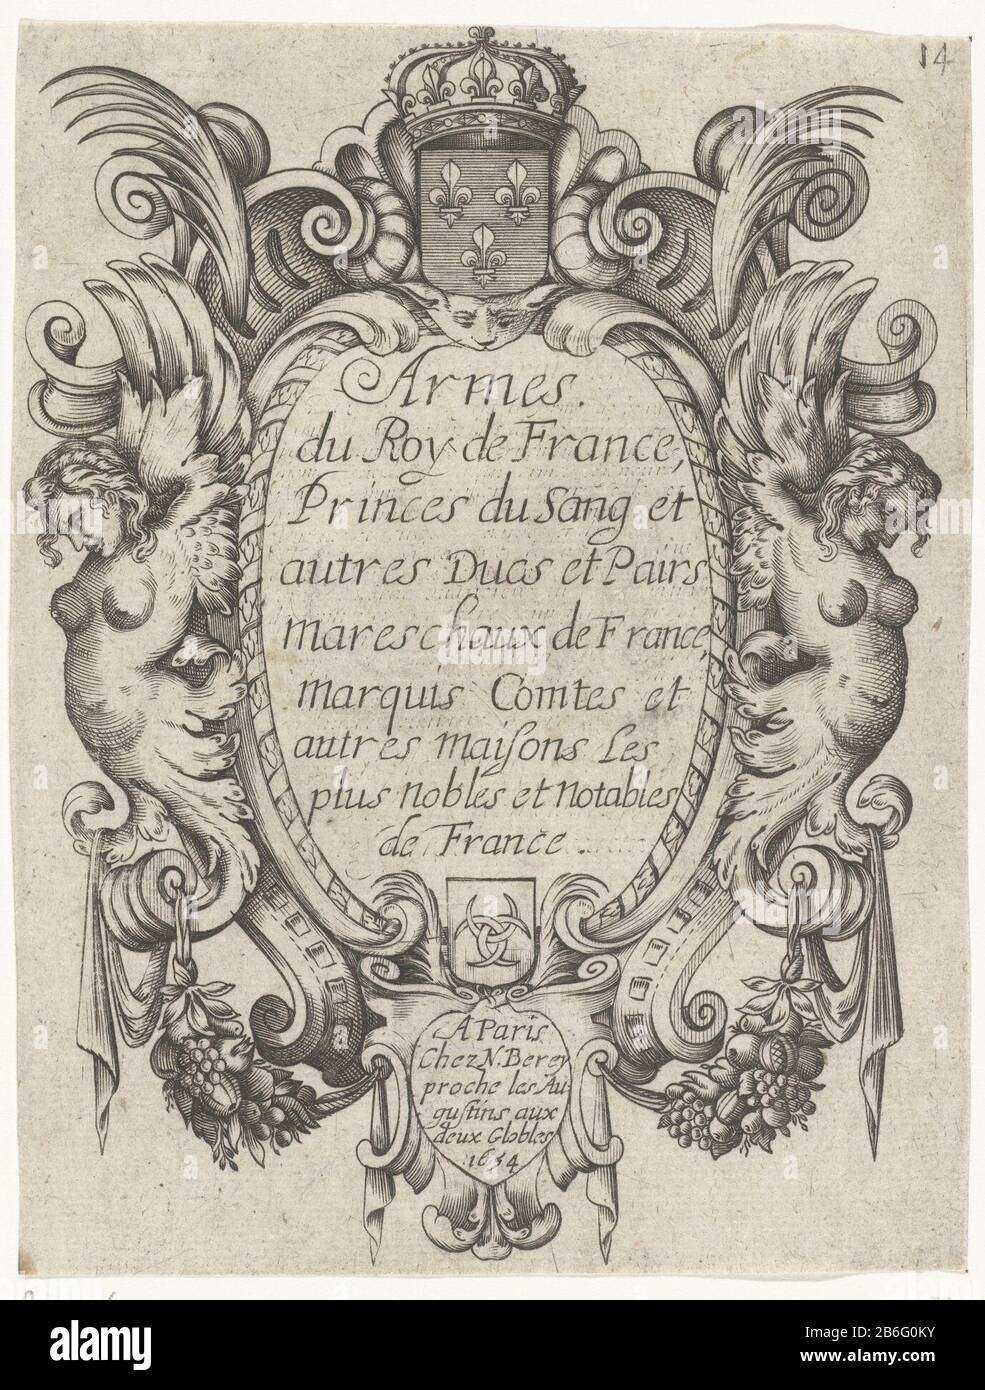 14
Armes.
du Roy de France,
Princes du Sang et
autres Ducs et Pairs
mareschaux de France,
marquis Comtes et
autres maiſons Les
plus nobles et notables
de France.
A Paris
Chez N. Berey
proche les Au
guſtins aux
deux Globles
1654
alamy
Image ID: 2B6G0KY
www.alamy.com